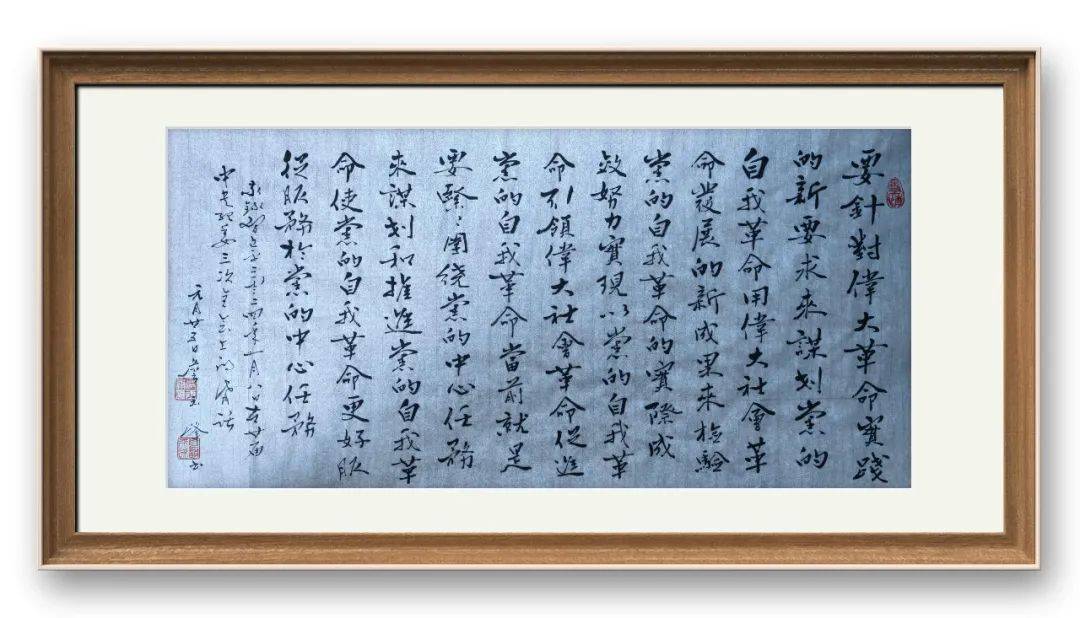 要針對偉大革命實踐
的新要求來謀划黨的
自我革命用偉大社會革
命發展的新成果來檢驗
黨的自我革命的實際成
效努力實現以黨的自我革
命引領偉大社會革命促進
黨的自我革命當前就是
要緊〻圍绕黨的中心任務
來謀划和推進黨的自我革
命使黨的自我革命更好服
從服務於黨的中心任務
二〇二四年一月八日在廿届
中央纪委三次全会上的讲话
元月廿五日